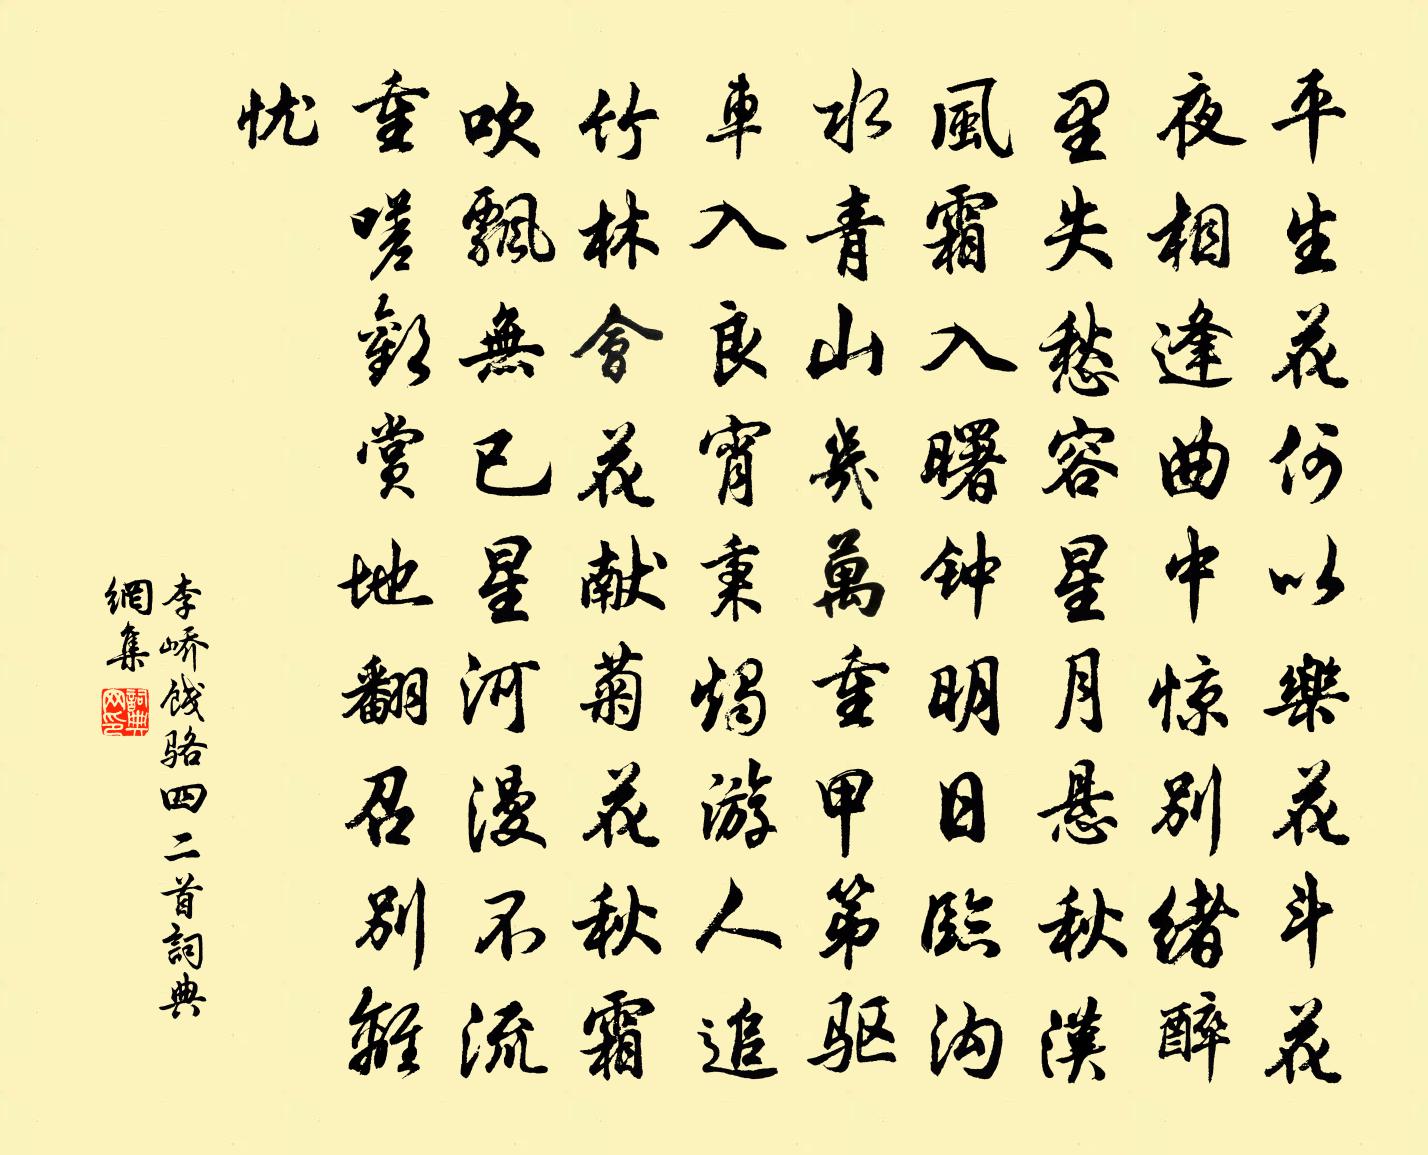 平生花何以樂花斗花
夜相逢曲中惊别緒醉
里失愁容星月悬秋漢
風霜入曙钟明日臨沟
水青山幾萬重甲第驱
車入良宵秉烛游人追
竹林會花献菊花秋霜
吹飄無已星河漫不流
重嗟歡賞地翻召别離
忧
李峤餞骆四二首詞典
網集
詞典網印